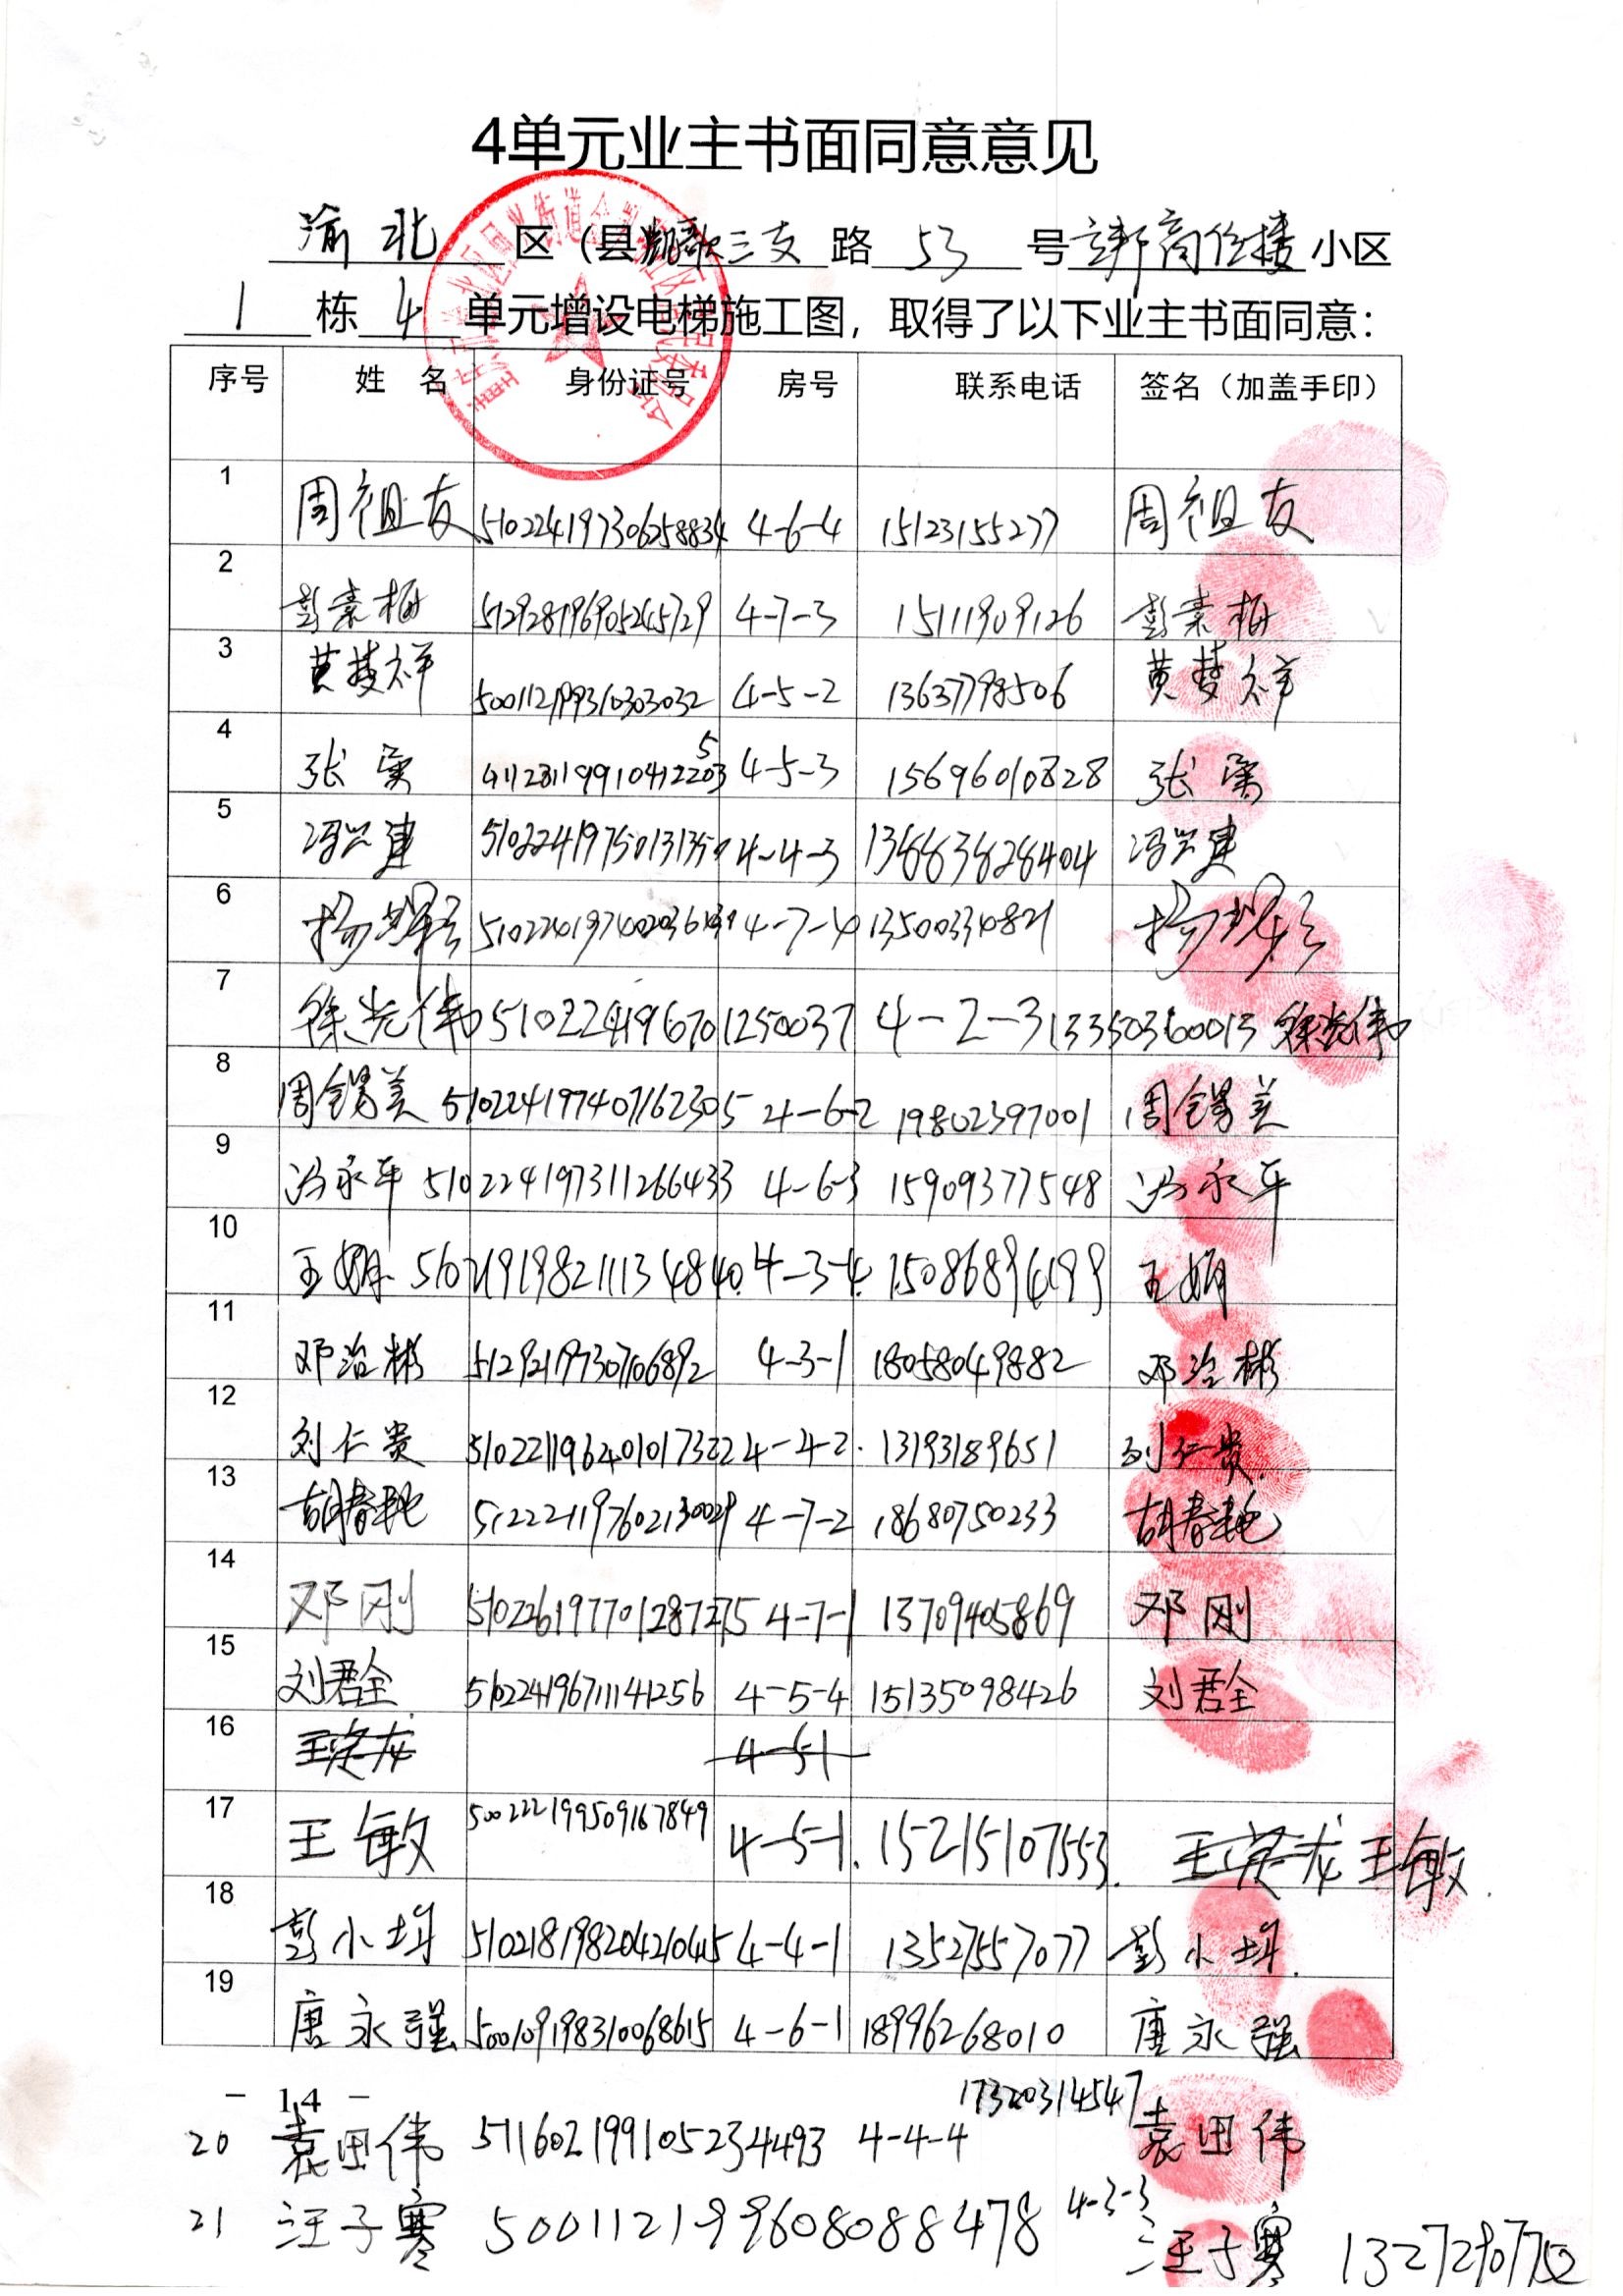 4单元业主书面同意意见
渝北 区（县 凯歌三支 路 53 号 小区
1 栋 4 单元增设电梯施工图，取得了以下业主书面同意：
序号 姓 名 身份证号 房号 联系电话 签名（加盖手印）
1 周祖友 510224197306258834 4-6-4 15123155277 周祖友
2 彭素梅 512928196905245729 4-7-3 15111909126 彭素梅
3 黄梦祥 500112199310303032 4-5-2 13637798506 黄梦祥
4 张寅 4-5-3 15696010828 张寅
5 冯兴建 4-4-3 冯兴建
6 4-7-4 13500334821
7 徐光伟 510224196701250037 4-2-3 13350360013 徐光伟
8 周锡美 510224197407162305 4-6-2 19802397001 周锡美
9 冯永平 510224197311266433 4-6-3 15909377548 冯永平
10 王娟 4-3-4 王娟
11 邓治彬 512921197307106892 4-3-1 18058049882 邓治彬
12 刘仁贵 510221196401017322 4-4-2 13193189651 刘仁贵
13 胡春艳 512221197602130029 4-7-2 18680750233 胡春艳
14 邓刚 510226197701287275 4-7-1 13709405869 邓刚
15 刘君全 510224196711141256 4-5-4 15135098426 刘君全
16 王英龙 4-5-1
17 王敏 500222199509167849 4-5-1. 15215107553. 王英龙 王敏.
18 彭小娟 510218198204210415 4-4-1 13527557077 彭小娟.
19 唐永强 500109198310068615 4-6-1 18996268010 唐永强
- 14 -
17320314547
20 袁田伟 511602199105234493 4-4-4 袁田伟
21 汪子寒 500112199608088478 4-3-3 汪子寒